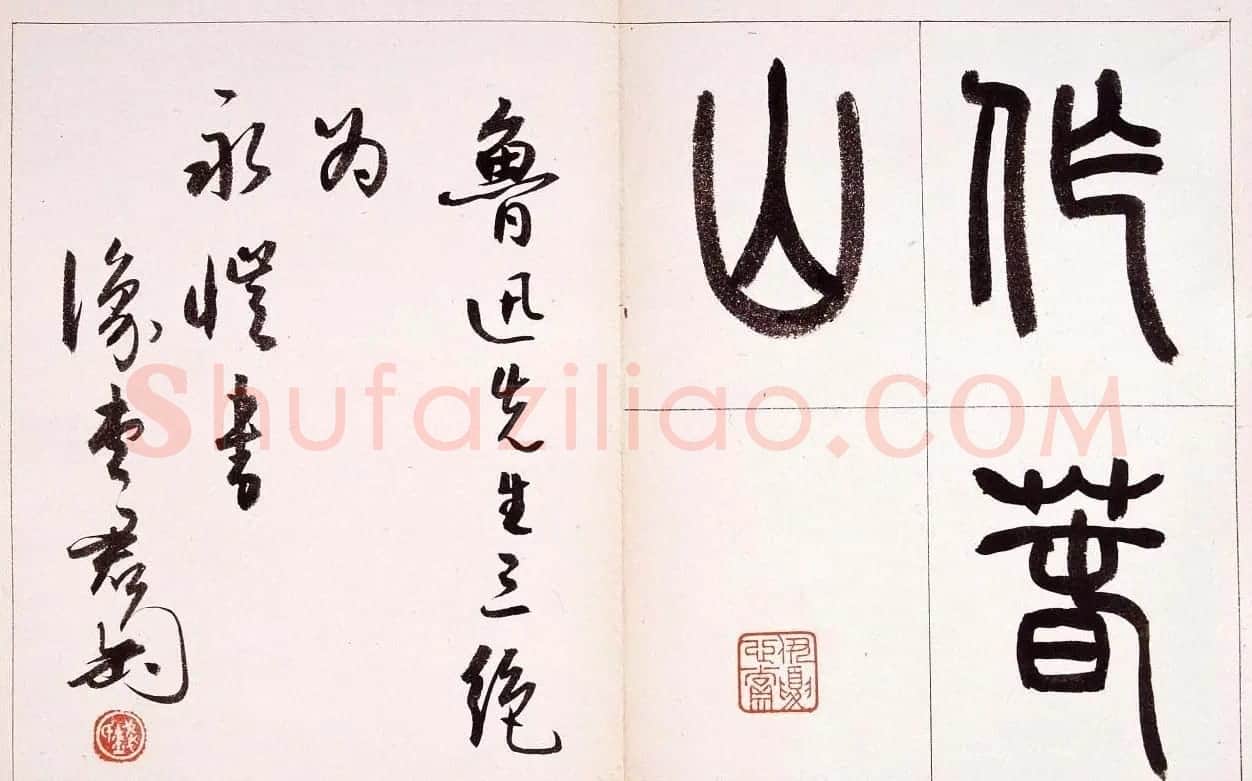 作春
山
魯迅先生三絕
為
永愷書
豫堂君匋
Shufaziliao.COM